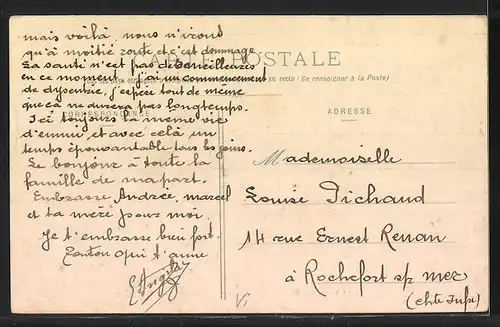 mais voilà, nous n'irons
qu'à moitié route, et c'est dommage
CARTE POSTALE
La santé n'est pas des merveilleuses
en ce moment, j'ai un commencement
au recto (Se renseigner à la Poste)
de dysentrie, j'espère tout de même
que ca ne durera pas longtemps.
CORRESPONDANCE
ADRESSE
Ici toujours la même vie
d'ennui, et avec celà un
temps épouvantable tous les jours.
Le bonjour à toute la
famille de ma part.
Embrasse Andrée, marcel
et ta mère pour moi.
Je t'embrasse bien fort.
Tonton qui t'aime
Mademoiselle
Louise Pichaud
14 rue Ernest Renan
à Rochefort s/ mer
(chte Infre)